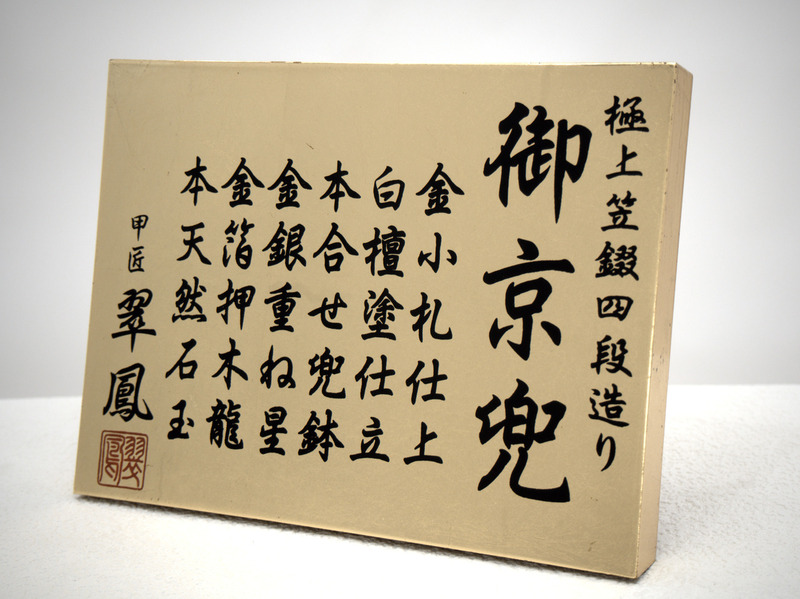 極上笠錣四段造り
御京兜
金小札仕上
白檀塗仕立
本合せ兜鉢
金銀重ね星
金箔押木龍
本天然石玉
甲匠 翠鳳
翠鳳